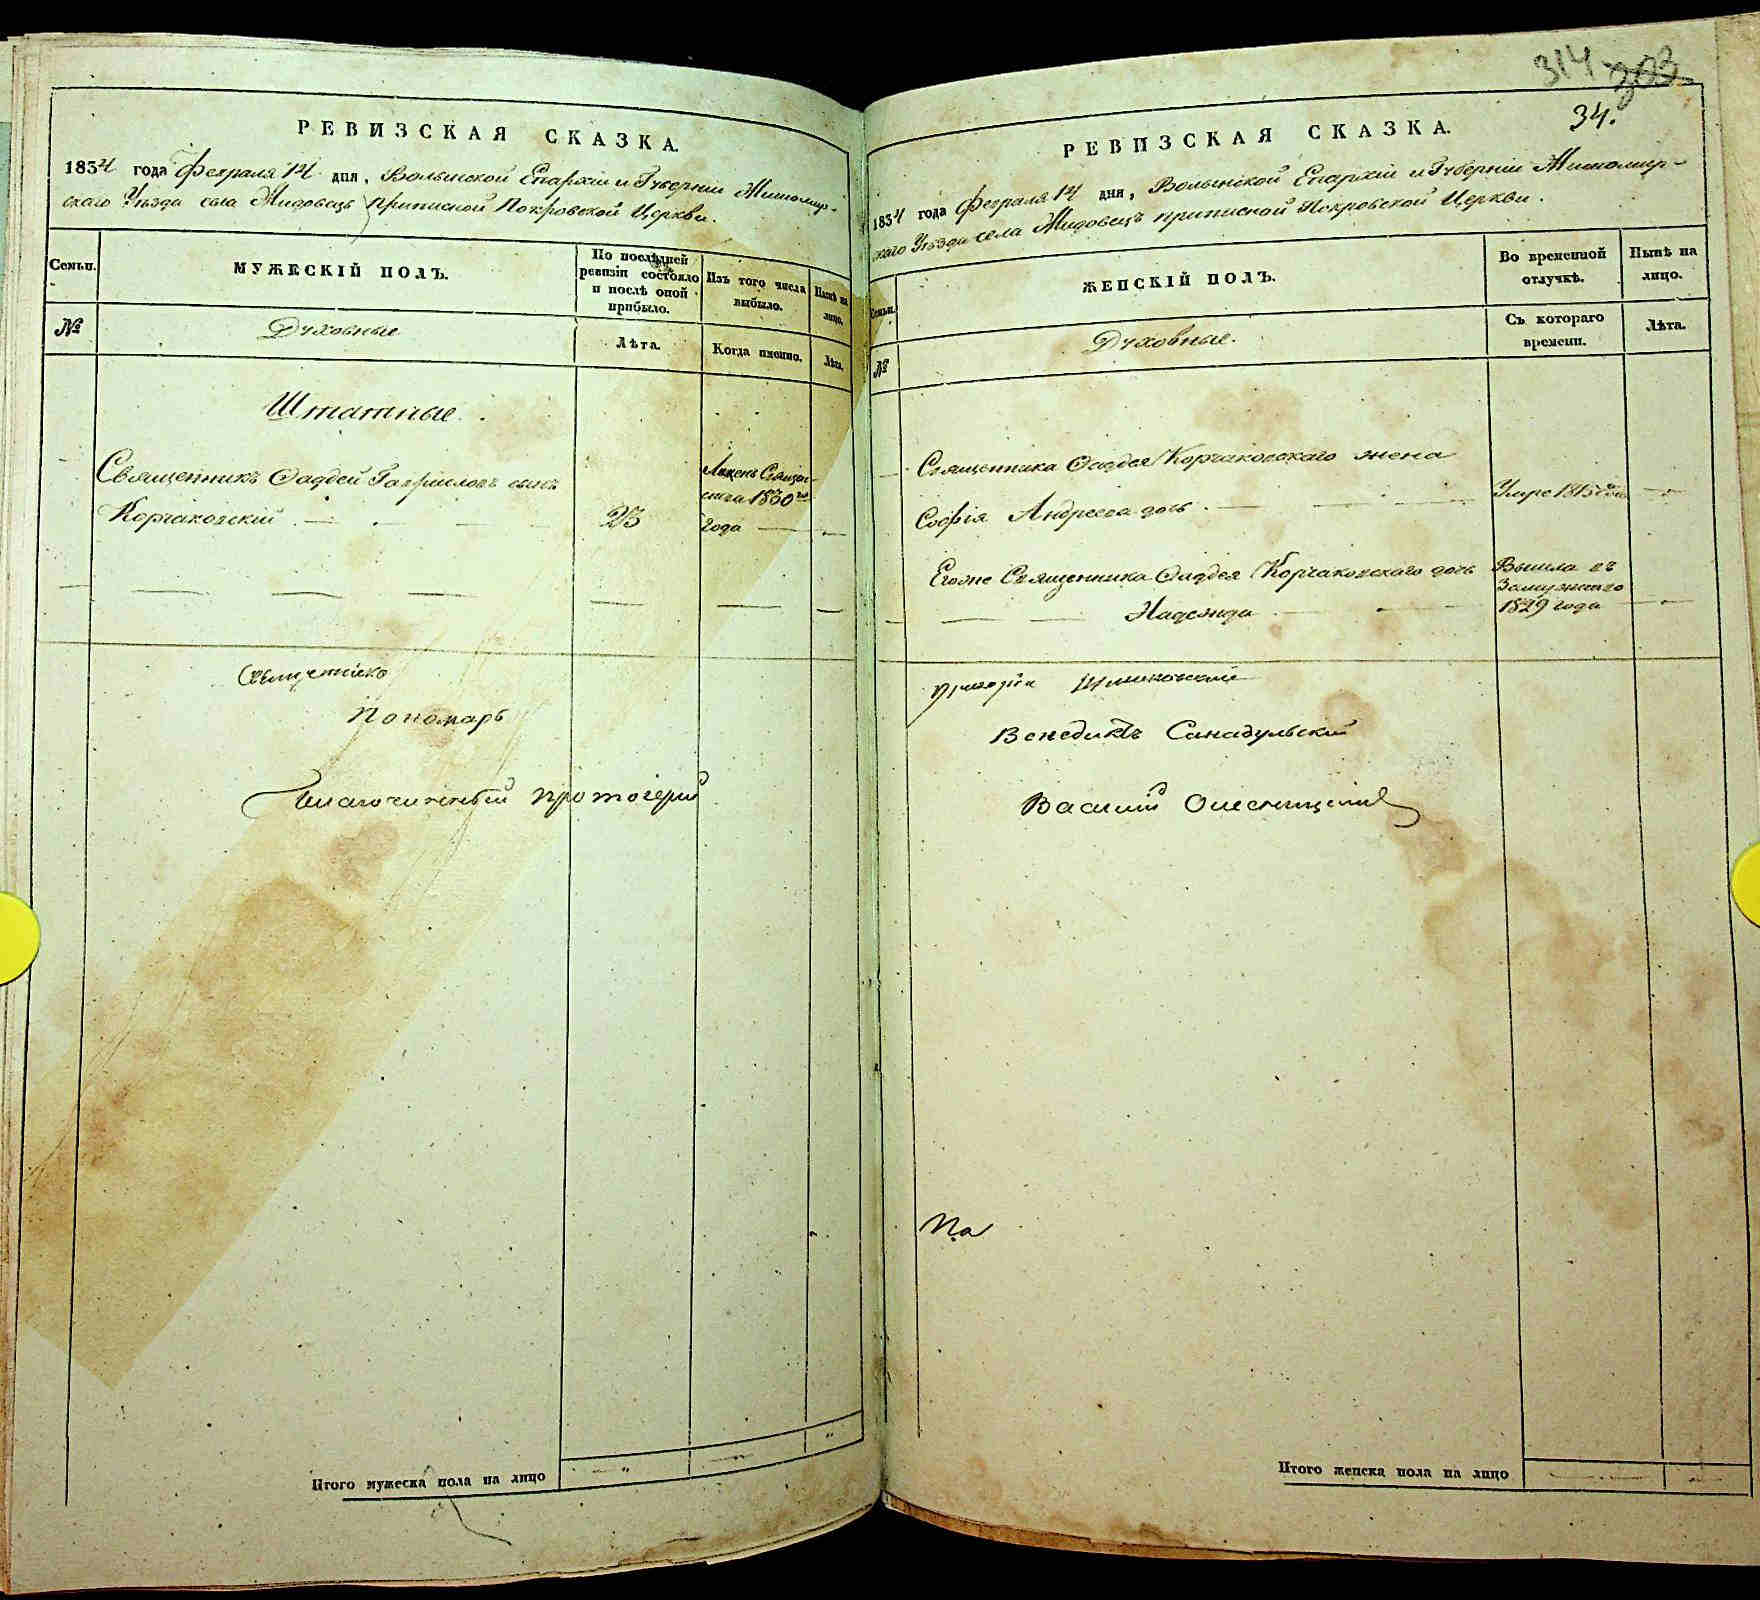 РЕВИЗСКАЯ СКАЗКА.
1834 года Февраля 14 дня, Волынской Епархіи и Губерніи Житомир-
скаго Уѣзда села Жидовецъ приписной Покровской Церкви.
Семьи.
МУЖЕСКІЙ ПОЛЪ.
По послѣдней ревизіи состояло и послѣ оной прибыло.
Изъ того числа выбыло.
Нынѣ на лицо.
№
Духовные
Лѣта.
Когда именно.
Лѣта.
Штатные.
Священникъ Фаддей Гавриловъ сынъ
Корчаковскій
23
Лишенъ Священства 1830го
года
Священникъ
Пономарь
Благочинный протоіерей
Итого мужеска пола на лицо
314 303
34.
РЕВИЗСКАЯ СКАЗКА.
1834 года Февраля 14 дня, Волынской Епархіи и Губерніи Житомир-
скаго Уѣзда села Жидовецъ приписной Покровской Церкви.
Семьи.
ЖЕНСКІЙ ПОЛЪ.
Во временной отлучкѣ.
Нынѣ на лицо.
№
Духовные.
Съ котораго времени.
Лѣта.
Священника Фаддея Корчаковскаго жена
Софія Андреева дочь.
Умре 1815 года
Егоже Священника Фаддея Корчаковскаго дочь
Надежда
Вышла въ
Замужство
1829 года
Григорій
Венедиктъ
Василий
На
Итого женска пола на лицо